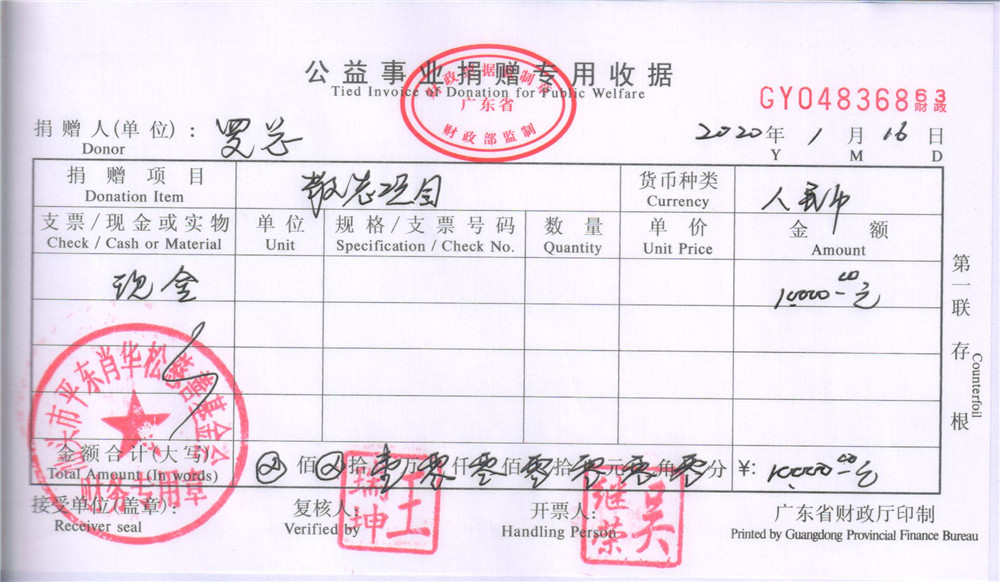 公益事业捐赠专用收据
Tied Invoice of Donation for Public Welfare
广东省
财政部监制
GY04836863
财政
捐赠人(单位):罗总
Donor
2020年1月16日
Y M D
捐赠项目
Donation Item
敬老项目
货币种类
Currency
人民币
支票/现金或实物
Check / Cash or Material
单位
Unit
规格/支票号码
Specification / Check No.
数量
Quantity
单价
Unit Price
金额
Amount
现金
10000.00元
第一联存根
Counterfoil
市平东肖华松慈善基金会
财务专用章
金额合计(大写)
Total Amount (In words)
佰 拾壹万零仟零佰零拾零元零角零分 ¥: 10000.00元
接受单位(盖章):
Receiver seal
复核人:
Verified by
王瑞坤
开票人:
Handling Person
吴继荣
广东省财政厅印制
Printed by Guangdong Provincial Finance Bureau